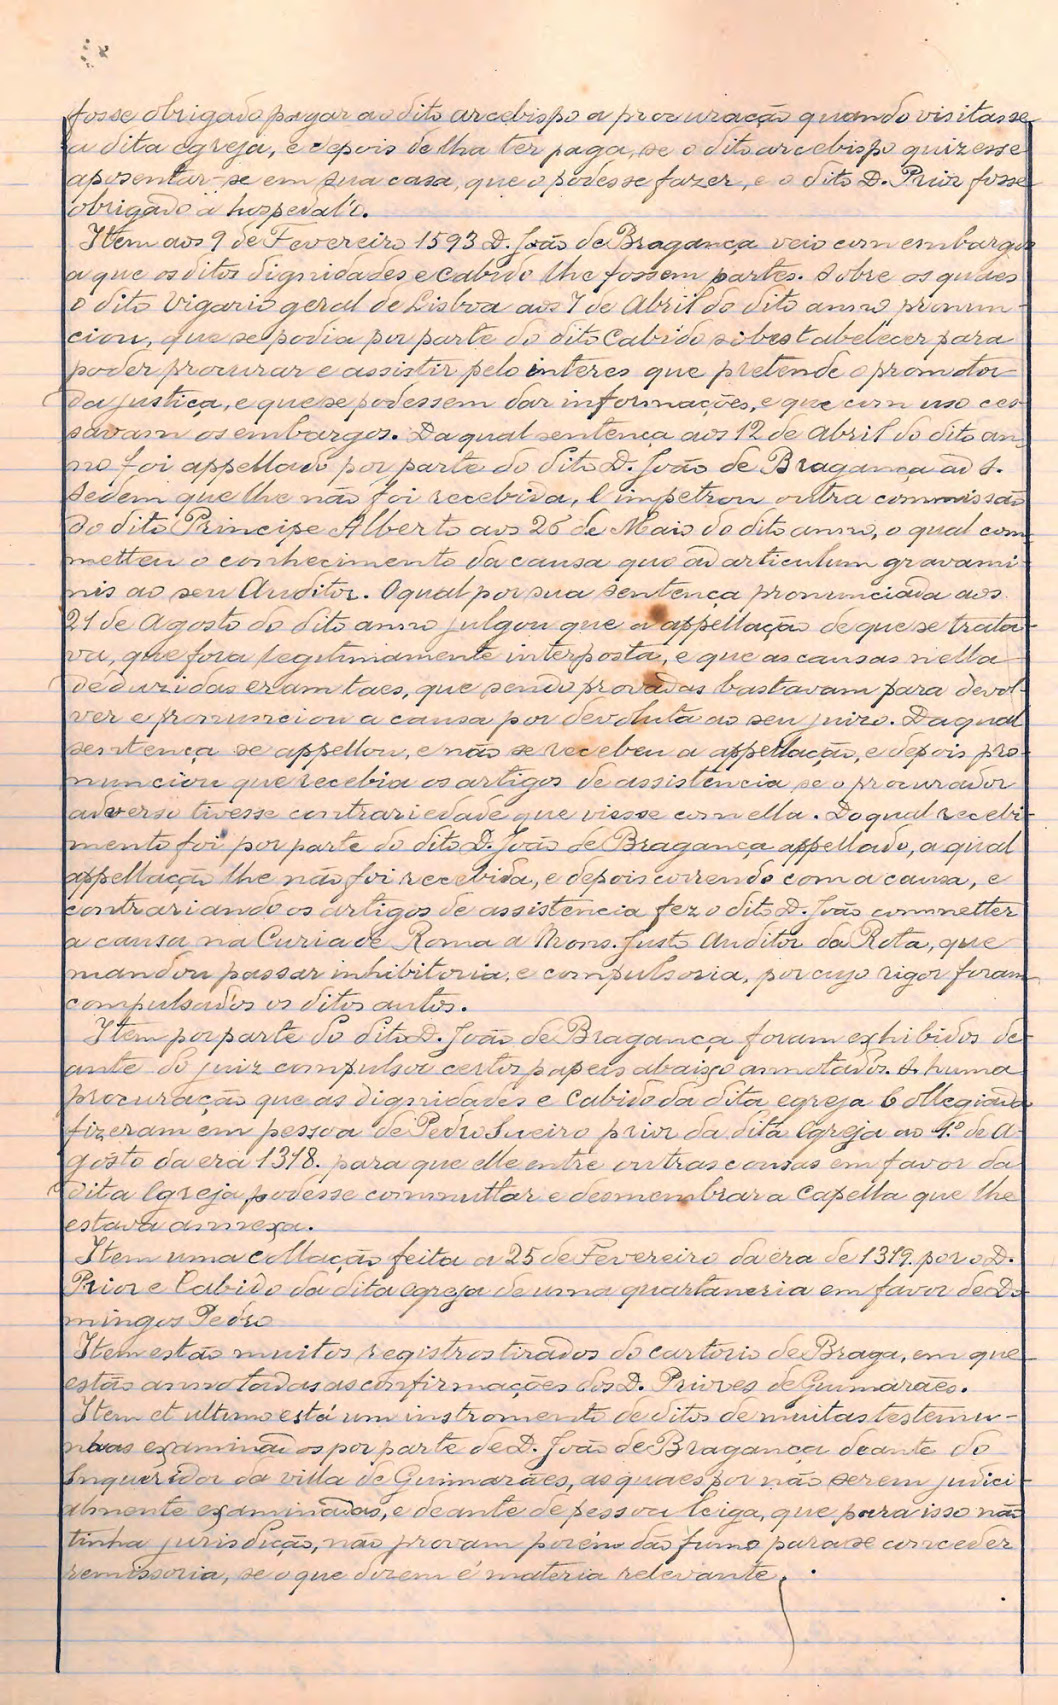 fosse obrigado pagar ao dito arcebispo a procuração quando visitasse
a dita egreja, e depois de lha ter paga, se o dito arcebispo quizesse
aposentar-se em sua casa, que o podesse fazer, e o dito D. Prior fosse
obrigado a hospedal'o.
Item aos 9 de Fevereiro 1593 D. João de Bragança veio com embargos
a que os ditos dignidades e Cabido lhe fossem partes. Sobre os quaes
o dito Vigario geral de Lisboa aos 7 de Abril do dito anno pronun-
ciou, que se podia por parte do dito Cabido sobestabelecer para
poder procurar e assistir pelo interes que pretende o promotor
da justiça, e que se podessem dar informações, e que com isso ces
savam os embargos. Da qual sentença aos 12 de Abril do dito an-
no foi appellado por parte do dito D. João de Bragança ad S.
Sedem que lhe não foi recebida, e impetrou outra commissão
do dito Principe Alberto aos 26 de Maio do dito anno, o qual com
metteu o conhecimento da causa quo ad articulum gravami-
nis ao seu Auditor. O qual por sua sentença pronunciada aos
21 de Agosto do dito anno julgou que a appellação de que se trata-
va, que fora legitimamente interposta, e que as causas nella
deduzidas eram taes, que sendo provadas bastavam para devol-
ver e pronunciou a causa por devoluta ao seu juizo. Da qual
sentença se appellou, e não se recebeu a appellação, e depois pro-
nunciou que recebia os artigos de assistencia, se o procurador
adverso tivesse contrariedade que viesse com ella. Do qual recebi-
mento foi por parte do dito D. João de Bragança appellado, a qual
appellação lhe não foi recebida, e depois correndo com a causa, e
contrariando os artigos de assistencia fez o dito D. João commetter
a causa na Curia de Roma a Mons. Justo Auditor da Rota, que
mandou passar inhibitoria, e compulsoria, por cujo rigor foram
compulsados os ditos autos.
Item por parte do dito D. João de Bragança foram exhibidos de-
ante do juiz compulsor certos papeis abaixo annotados. S. huma
procuração que as dignidades e Cabido da dita egreja Collegiada
fizeram em pessoa de Pedro Sueiro prior da dita Egreja ao 1.º de A-
gosto da era 1318. para que elle entre outras cousas em favor da
dita Egreja podesse commuttar e desmembrar a Capella que lhe
estava annexa.
Item uma collação feita a 25 de Fevereiro da era de 1319. por o D.
Prior e Cabido da dita egreja de uma quartaneria em favor de Do-
mingos Pedro
Item estão muitos registros tirados do cartorio de Braga, em que
estão annotadas as confirmações dos D. Priores de Guimarães.
Item et ultimo está um instromento de ditos de muitas testemu-
nhas examinados por parte de D. João de Bragança deante do
Inqueridor da villa de Guimarães, as quaes por não serem judici-
almente examinadas, e deante de pessoa leiga, que para isso não
tinha jurisdicção, não provam porém dão fumo para se conceder
remissoria, se o que dizem é materia relevante.